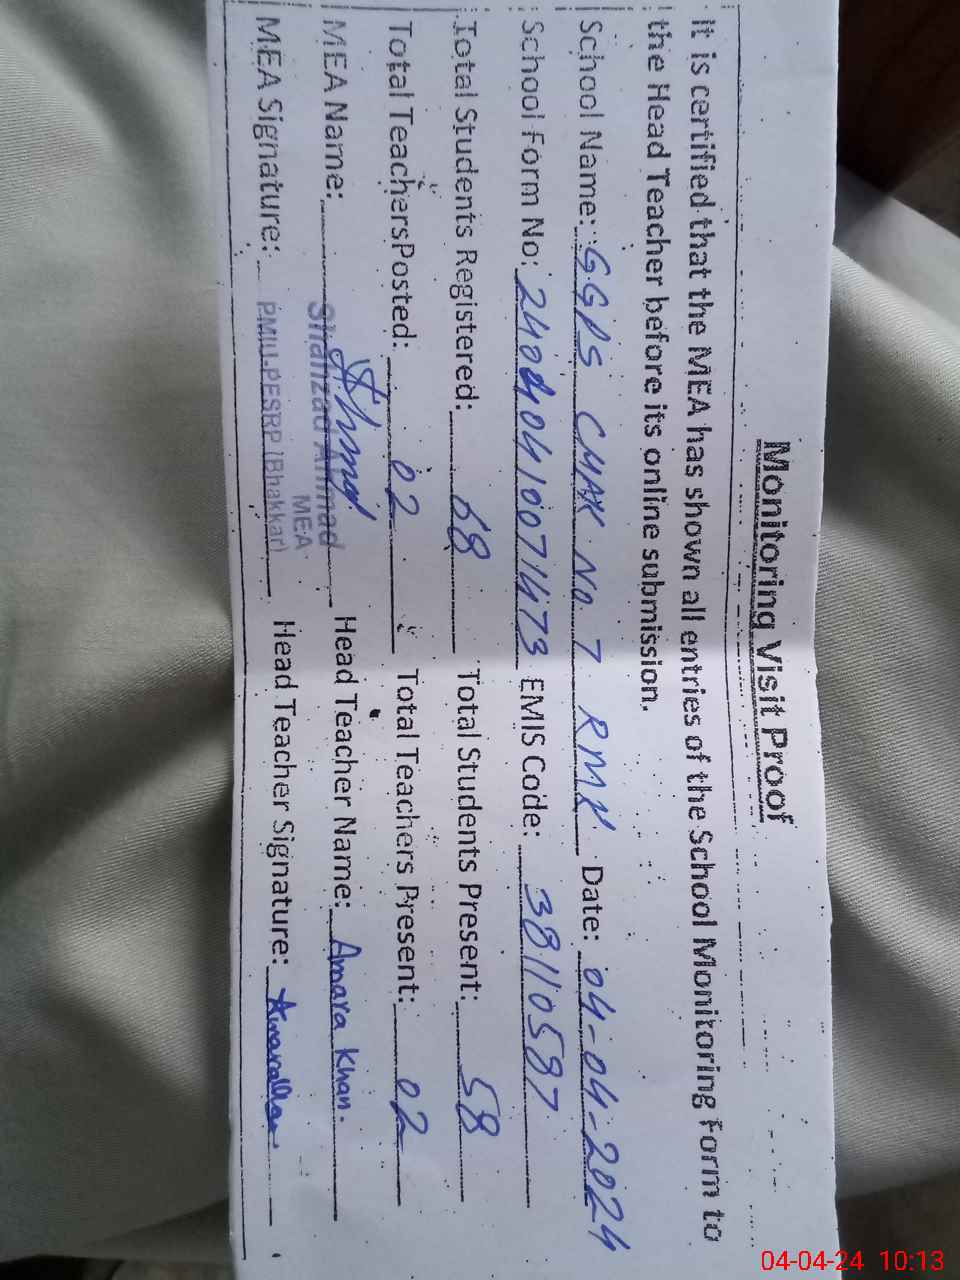 Monitoring Visit Proof
It is certified that the MEA has shown all entries of the School Monitoring Form to
the Head Teacher before its online submission.
School Name: GGPS CHAK No 7 RMK Date: 04-04-2024
School Form No: 24040410071473 EMIS Code: 38110587
Total Students Registered: 68 Total Students Present: 58
Total TeachersPosted: 02 Total Teachers Present: 02
MEA Name: Shahzad Ahmad Head Teacher Name: Amara Khan.
MEA
MEA Signature: PMIU-PESRP (Bhakkar) Head Teacher Signature:
04-04-24 10:13